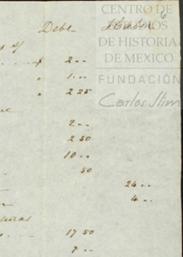 CENTRO DE
Debe
ESTUDIOS
DE HISTORIA
DE MEXICO
FUNDACIÓN
Carlos Slim
of
2 --
1 --
2 25
2 --
2 50
10 --
50
24 --
4 --
17 50
7 --